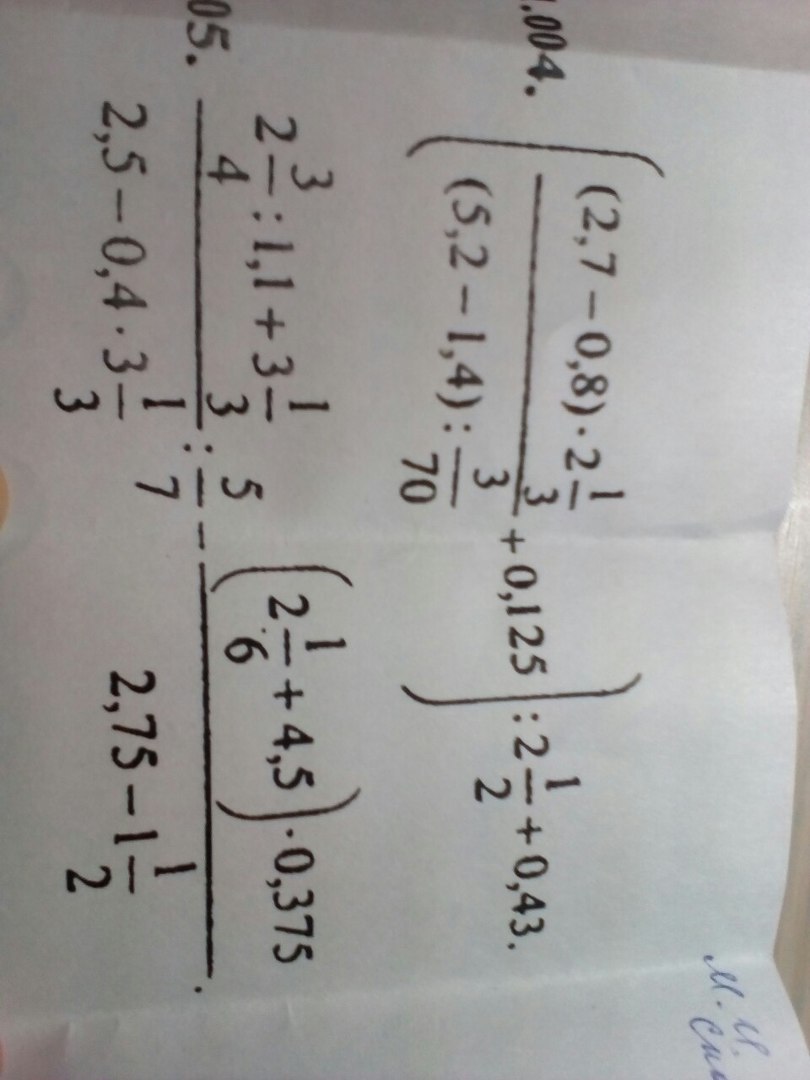 .004. ( ((2,7 − 0,8) · 2 1/3) / ((5,2 − 1,4) : 3/70) + 0,125 ) : 2 1/2 + 0,43.
05. (2 3/4 : 1,1 + 3 1/3) / (2,5 − 0,4 · 3 1/3) : 5/7 − ((2 1/6 + 4,5) · 0,375) / (2,75 − 1 1/2).